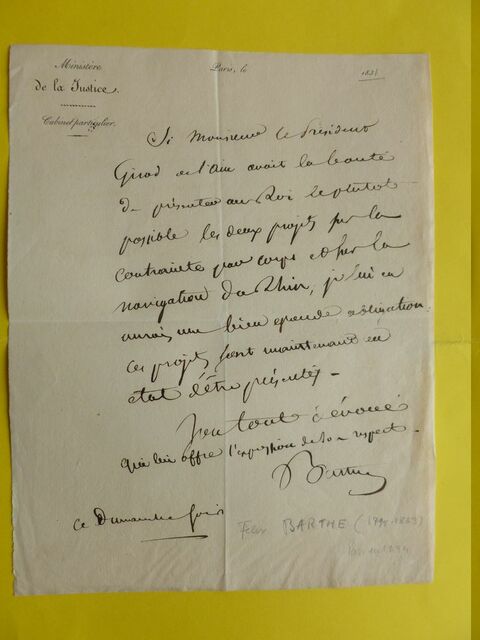 Ministère
de la Justice.
Cabinet particulier.
Paris, le
183
Si Monsieur le Président
Girod de l'Ain avait la bonté
de présenter au Roi le plutot
possible les deux projets sur la
contrainte par corps et sur la
navigation du Rhin, je lui en
aurais une bien grande obligation.
ces projets sont maintenant en
état d'être présentés -
tout dévoué
qui lui offre l'expression de son respect -
Barthe
ce Dimanche soir
Felix BARTHE (1795-1863)